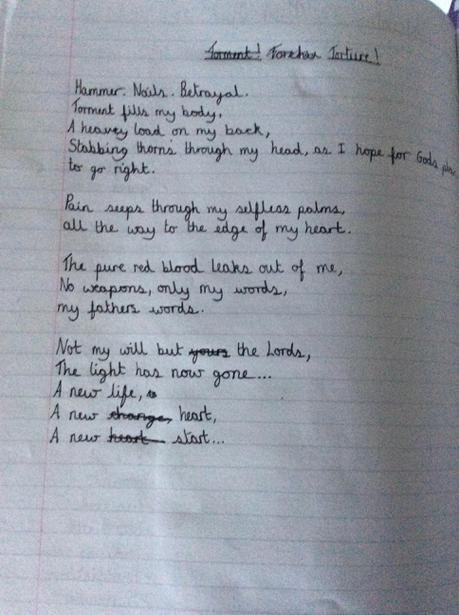 Torment! Forever Torture!
Hammer. Nails. Betrayal.
Torment fills my body,
A heavey load on my back,
Stabbing thorns through my head, as I hope for Gods plan
to go right.
Pain seeps through my selfless palms,
all the way to the edge of my heart.
The pure red blood leaks out of me,
No weapons, only my words,
my fathers words.
Not my will but yours the Lords,
The light has now gone...
A new life,
A new change, heart,
A new heart start...